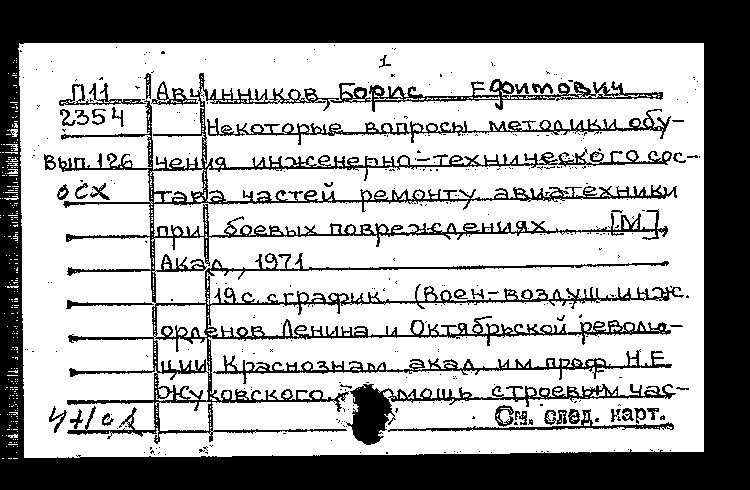 1
П11 Авчинников, Борис Ефимович
2354 Некоторые вопросы методики обу-
Вып. 126 чения инженерно-технического сос-
осх тава частей ремонту авиатехники
при боевых повреждениях [М.],
Акад., 1971.
19 с. с график. (Воен-воздуш. инж.
орденов Ленина и Октябрьской револю-
ции Краснознам. акад. им. проф. Н.Е.
Жуковского. Помощь строевым час-
См. след. карт.